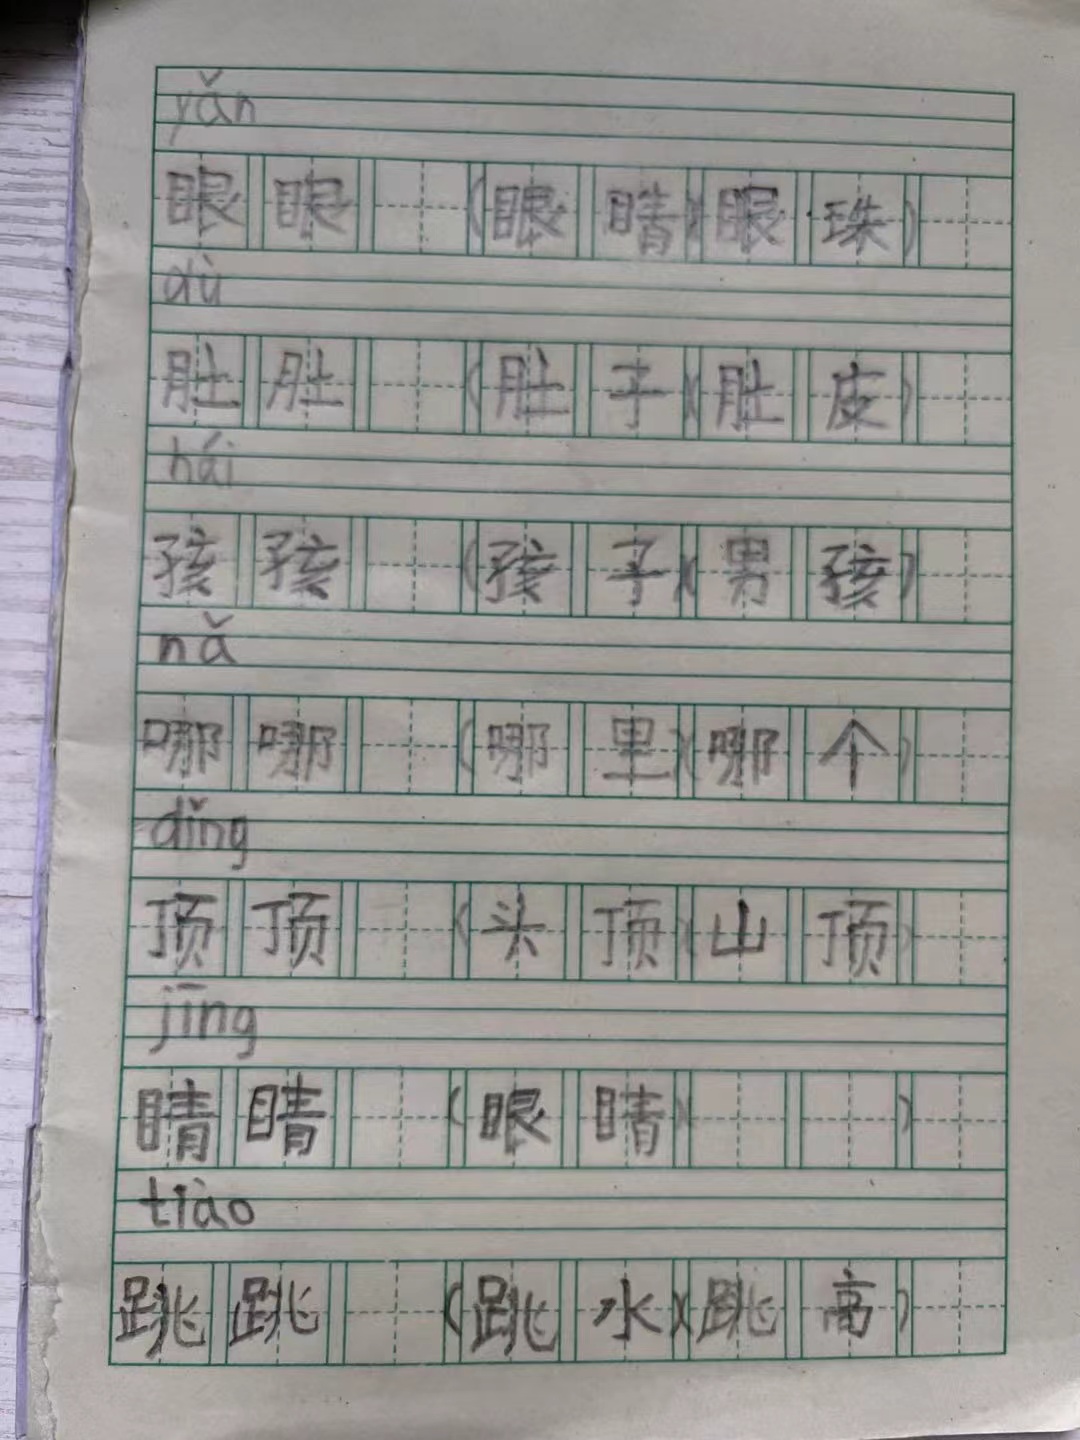 yǎn
眼眼（眼睛）（眼珠）
dù
肚肚（肚子）（肚皮）
hái
孩孩（孩子）（男孩）
nǎ
哪哪（哪里）（哪个）
dǐng
顶顶（头顶）（山顶）
jīng
睛睛（眼睛）（　　）
tiào
跳跳（跳水）（跳高）